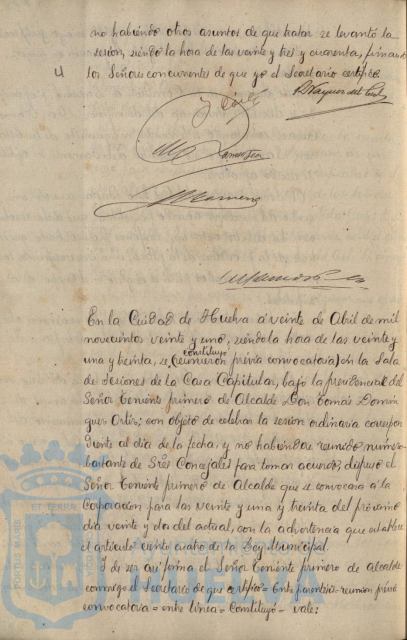 no habiendo otros asuntos de que tratar se levantó la
sesion, siendo la hora de las veinte y tres y cuarenta, firmando
los Señores concurrentes de que yo el Secretario certifico
En la Ciudad de Huelva a veinte de Abril de mil
novecientos veinte y uno, siendo la hora de las veinte y
constituyó
una y treinta, se (reunieron previa convocatoria) en la Sala
de Sesiones de la Casa Capitular, bajo la presidencia del
Señor Teniente primero de Alcalde Don Tomás Domin
guez Ortiz; con objeto de celebrar la sesion ordinaria correspon
diente al dia de la fecha, y no habiendose reunido numero
bastante de Sres Concejales para tomar acuerdo, dispuso el
Señor Teniente primero de Alcalde que se convocara a la
Corporacion para las veinte y una y treinta del próximo
dia veinte y dos del actual, con la advertencia que establece
el articulo veinte cuatro de la Ley Municipal.
Y de ser asi firma el Señor Teniente primero de Alcalde
conmigo el Secretario de que certifico = Entre parentesis = reunieron previa
convocatoria = entre linea = Constituyó = vale:
PORTUS MARIS
ET TERRAE
Ayuntamiento de
HUELVA